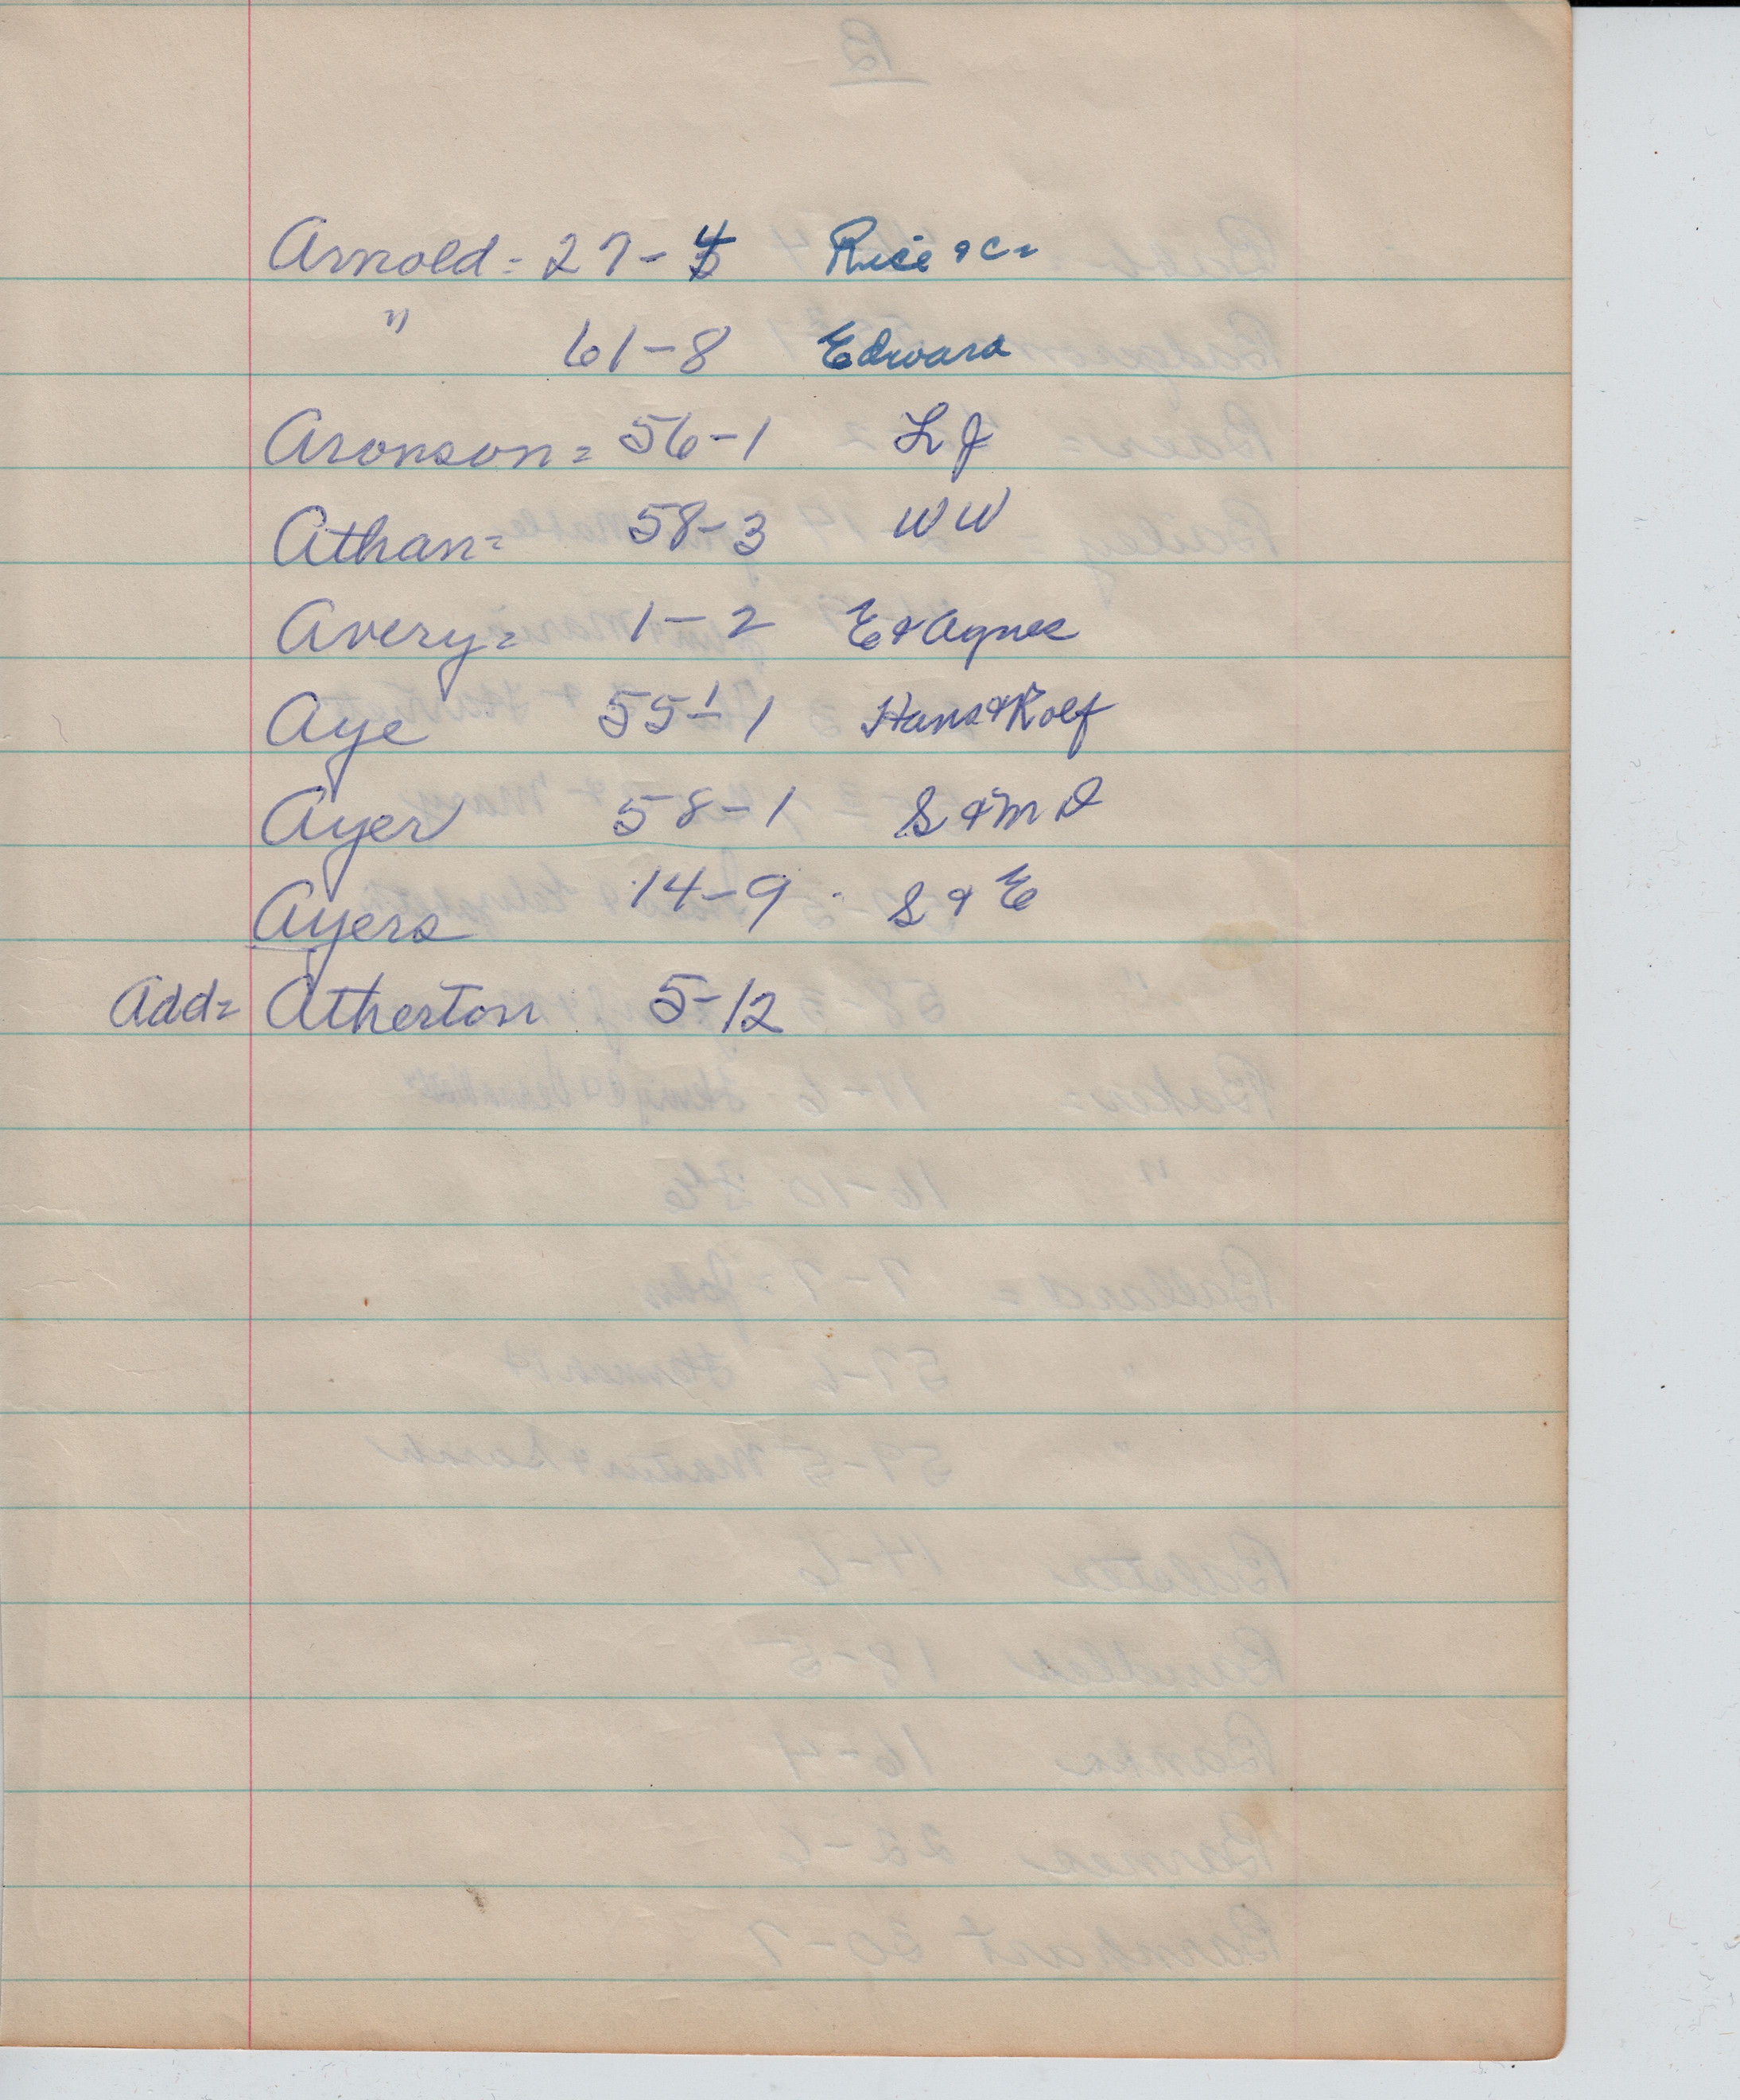 Arnold = 27-4 Rice & C-
" 61-8 Edward
Aronson = 56-1 L J
Athan = 58-3 W W
Avery = 1-2 E & Agnes
Aye 55-1 Hans & Rolf
Ayer 58-1 S & M D
Ayers 14-9 S & E
Add = Atherton 5-12